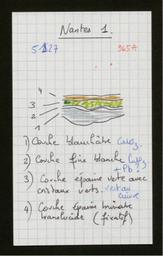 Nantes 1.
5127 965A
4
3
2
1
1) Couche blanchâtre CaCO3
2) Couche fine blanche
+ Pb?
3) Couche épaisse verte avec
cristaux verts.
4) Couche épaisse brunâtre
translucide (fixatif)